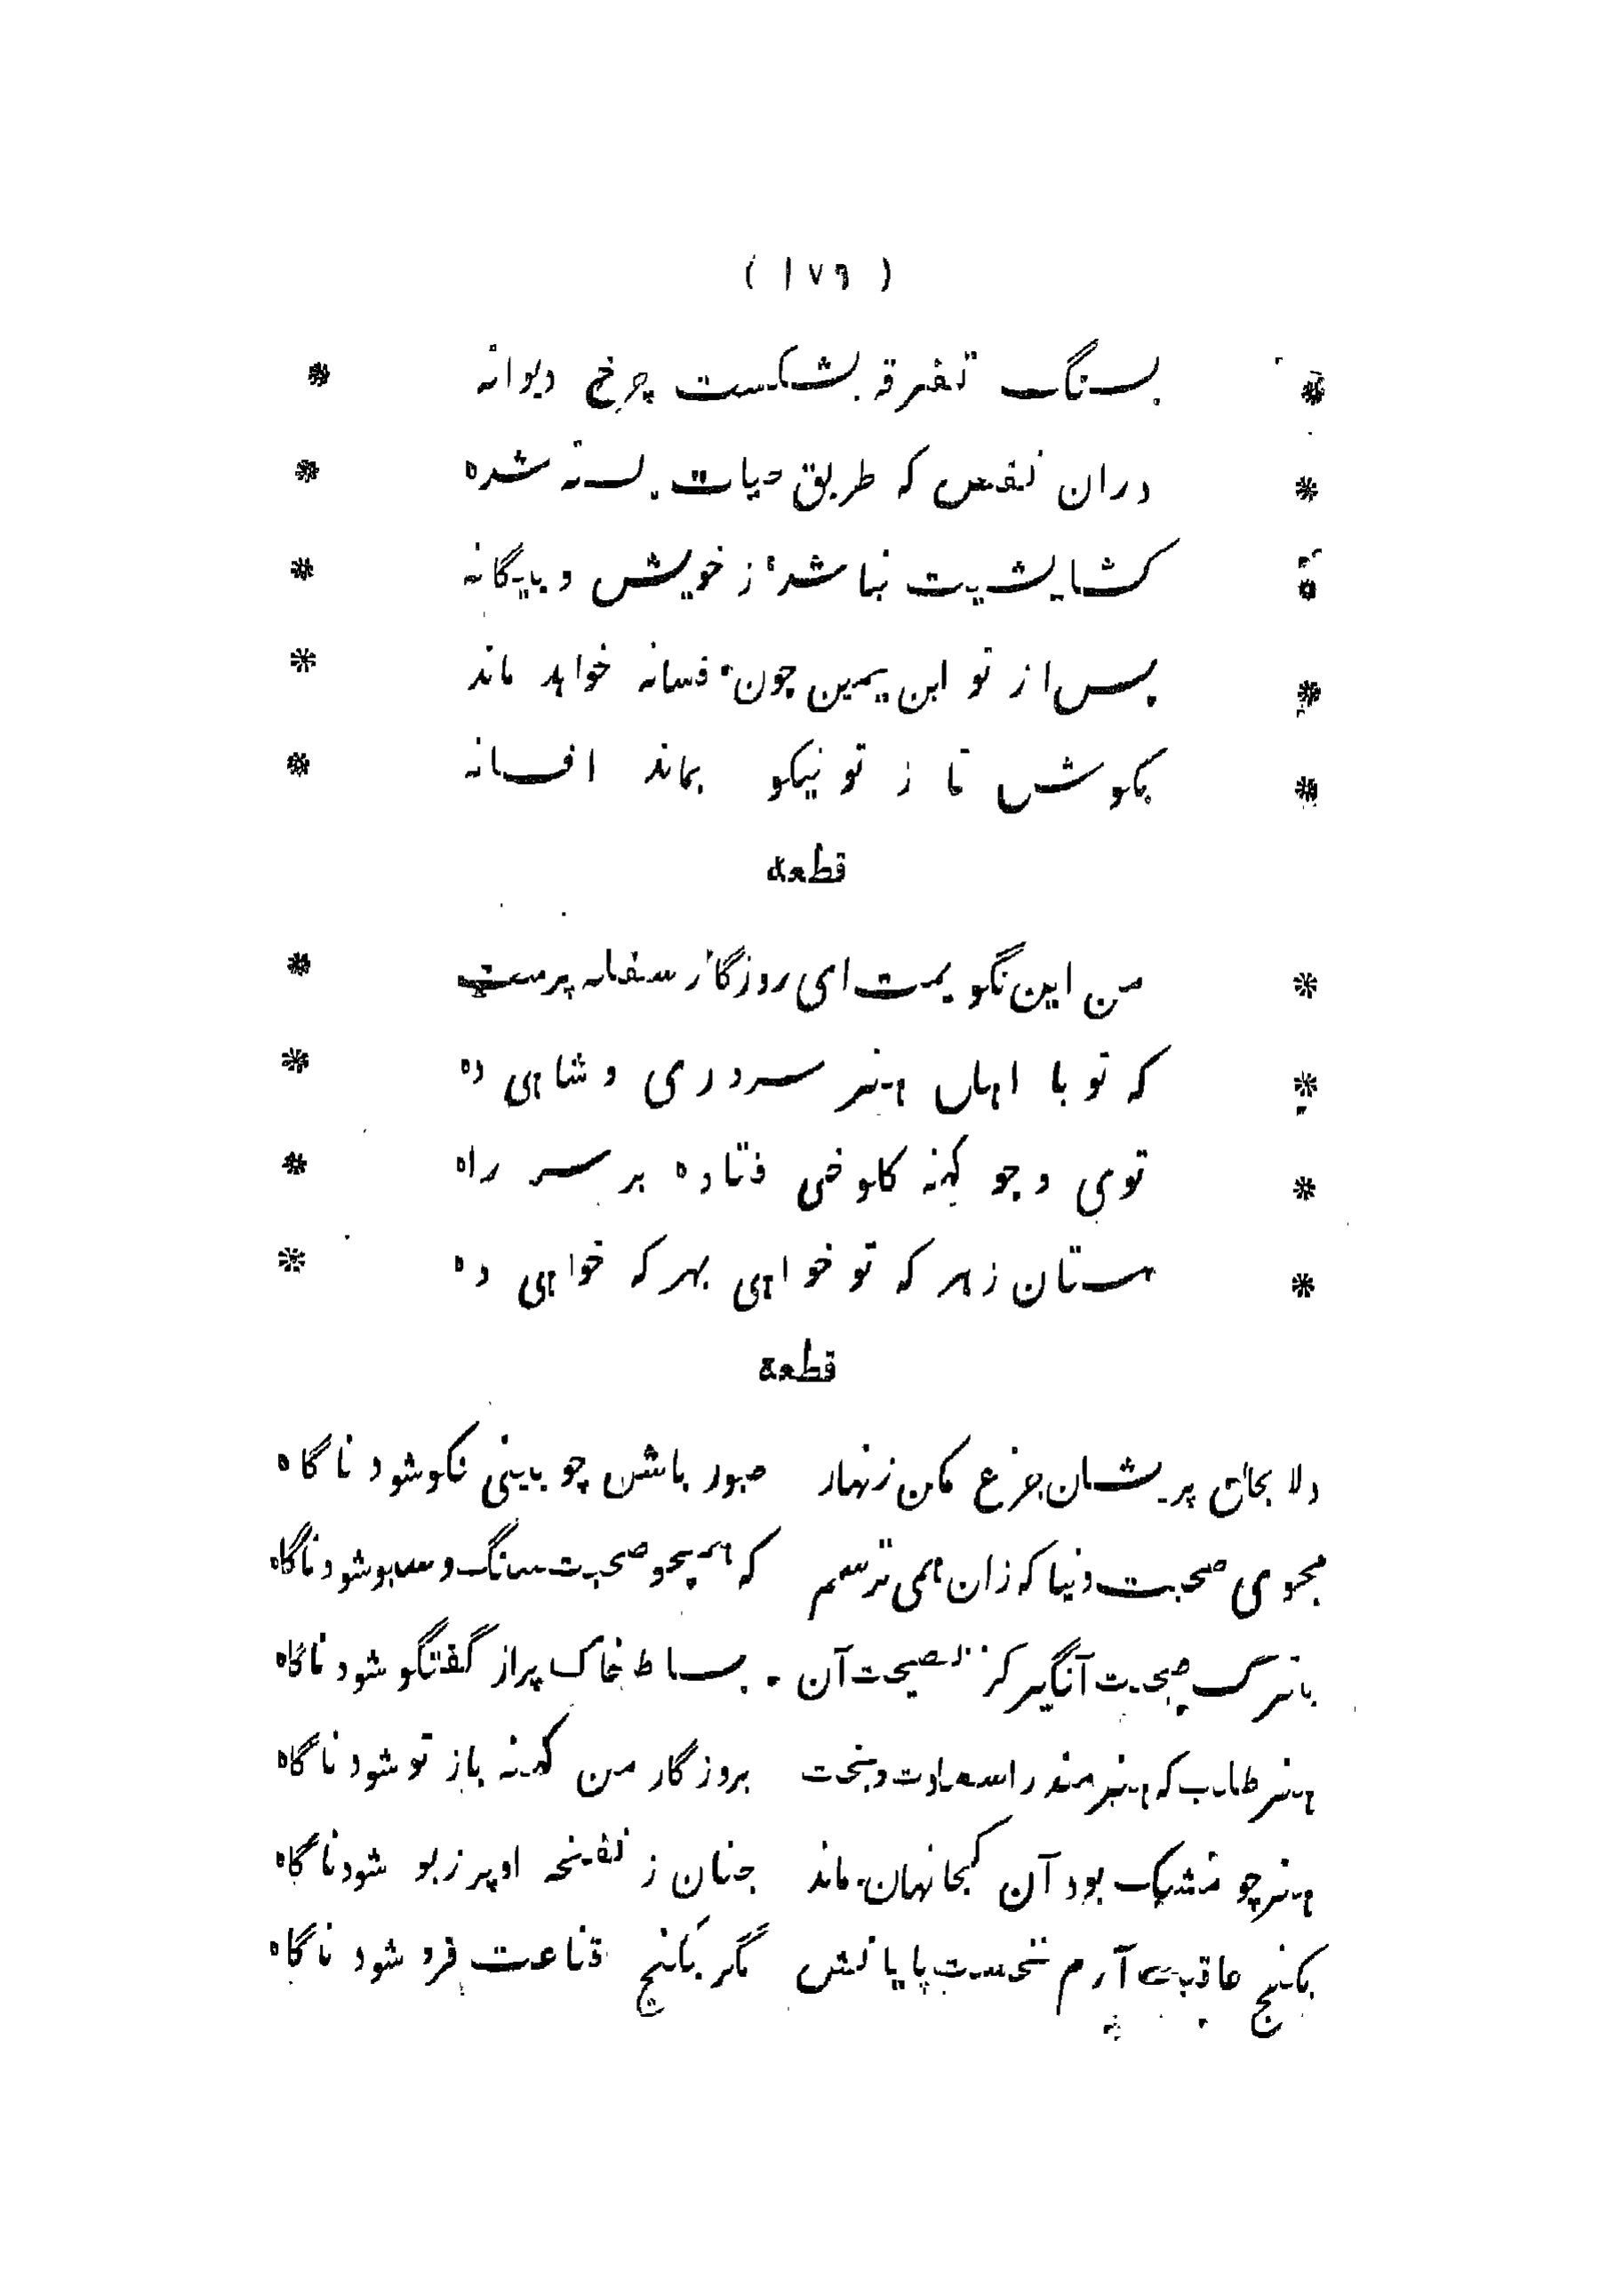 ( ١٧٦ )
* بسنگ تفرقه بشکست چرخ دیوانه *
* دران نفس که طریق حیات بسته شده *
* کشایشیت نباشد ز خویش و بیگانه *
* پس از تو ابن یمین چون فسانه خواهد ماند *
* بکوش تا ز تو نیکو بماند افسانه *
قطعه
* من این نگویمت ای روزگار سفله پرست *
* که تو با اهل هنر سروری و شاهی ده *
* توی و جو کهنه کلوخی فتاده بر سر راه *
* ستان زهر که تو خواهی بهر که خواهی ده *
قطعة
دلا بحال پریشان جزع مکن زنهار صبور باش چو بینی نکو شود ناگاه
مجوی صحبت دنیا که زان همی ترسم که همچو صحبت سنگ و سبو شود ناگاه
بترک صحبت آنگیر کز نصیحت آن بساط خاک پر از گفتگو شود ناگاه
هنر طلب که هنرمند را سعادت و بخت بروزگار من کهنه باز تو شود ناگاه
هنر چو مشک بود آن کجا نهان ماند جنان ز نفخه او پر ز بو شود ناگاه
بکنج عاقبت آرم نخست پایانش مگر بکنج قناعت فرد شود ناگاه